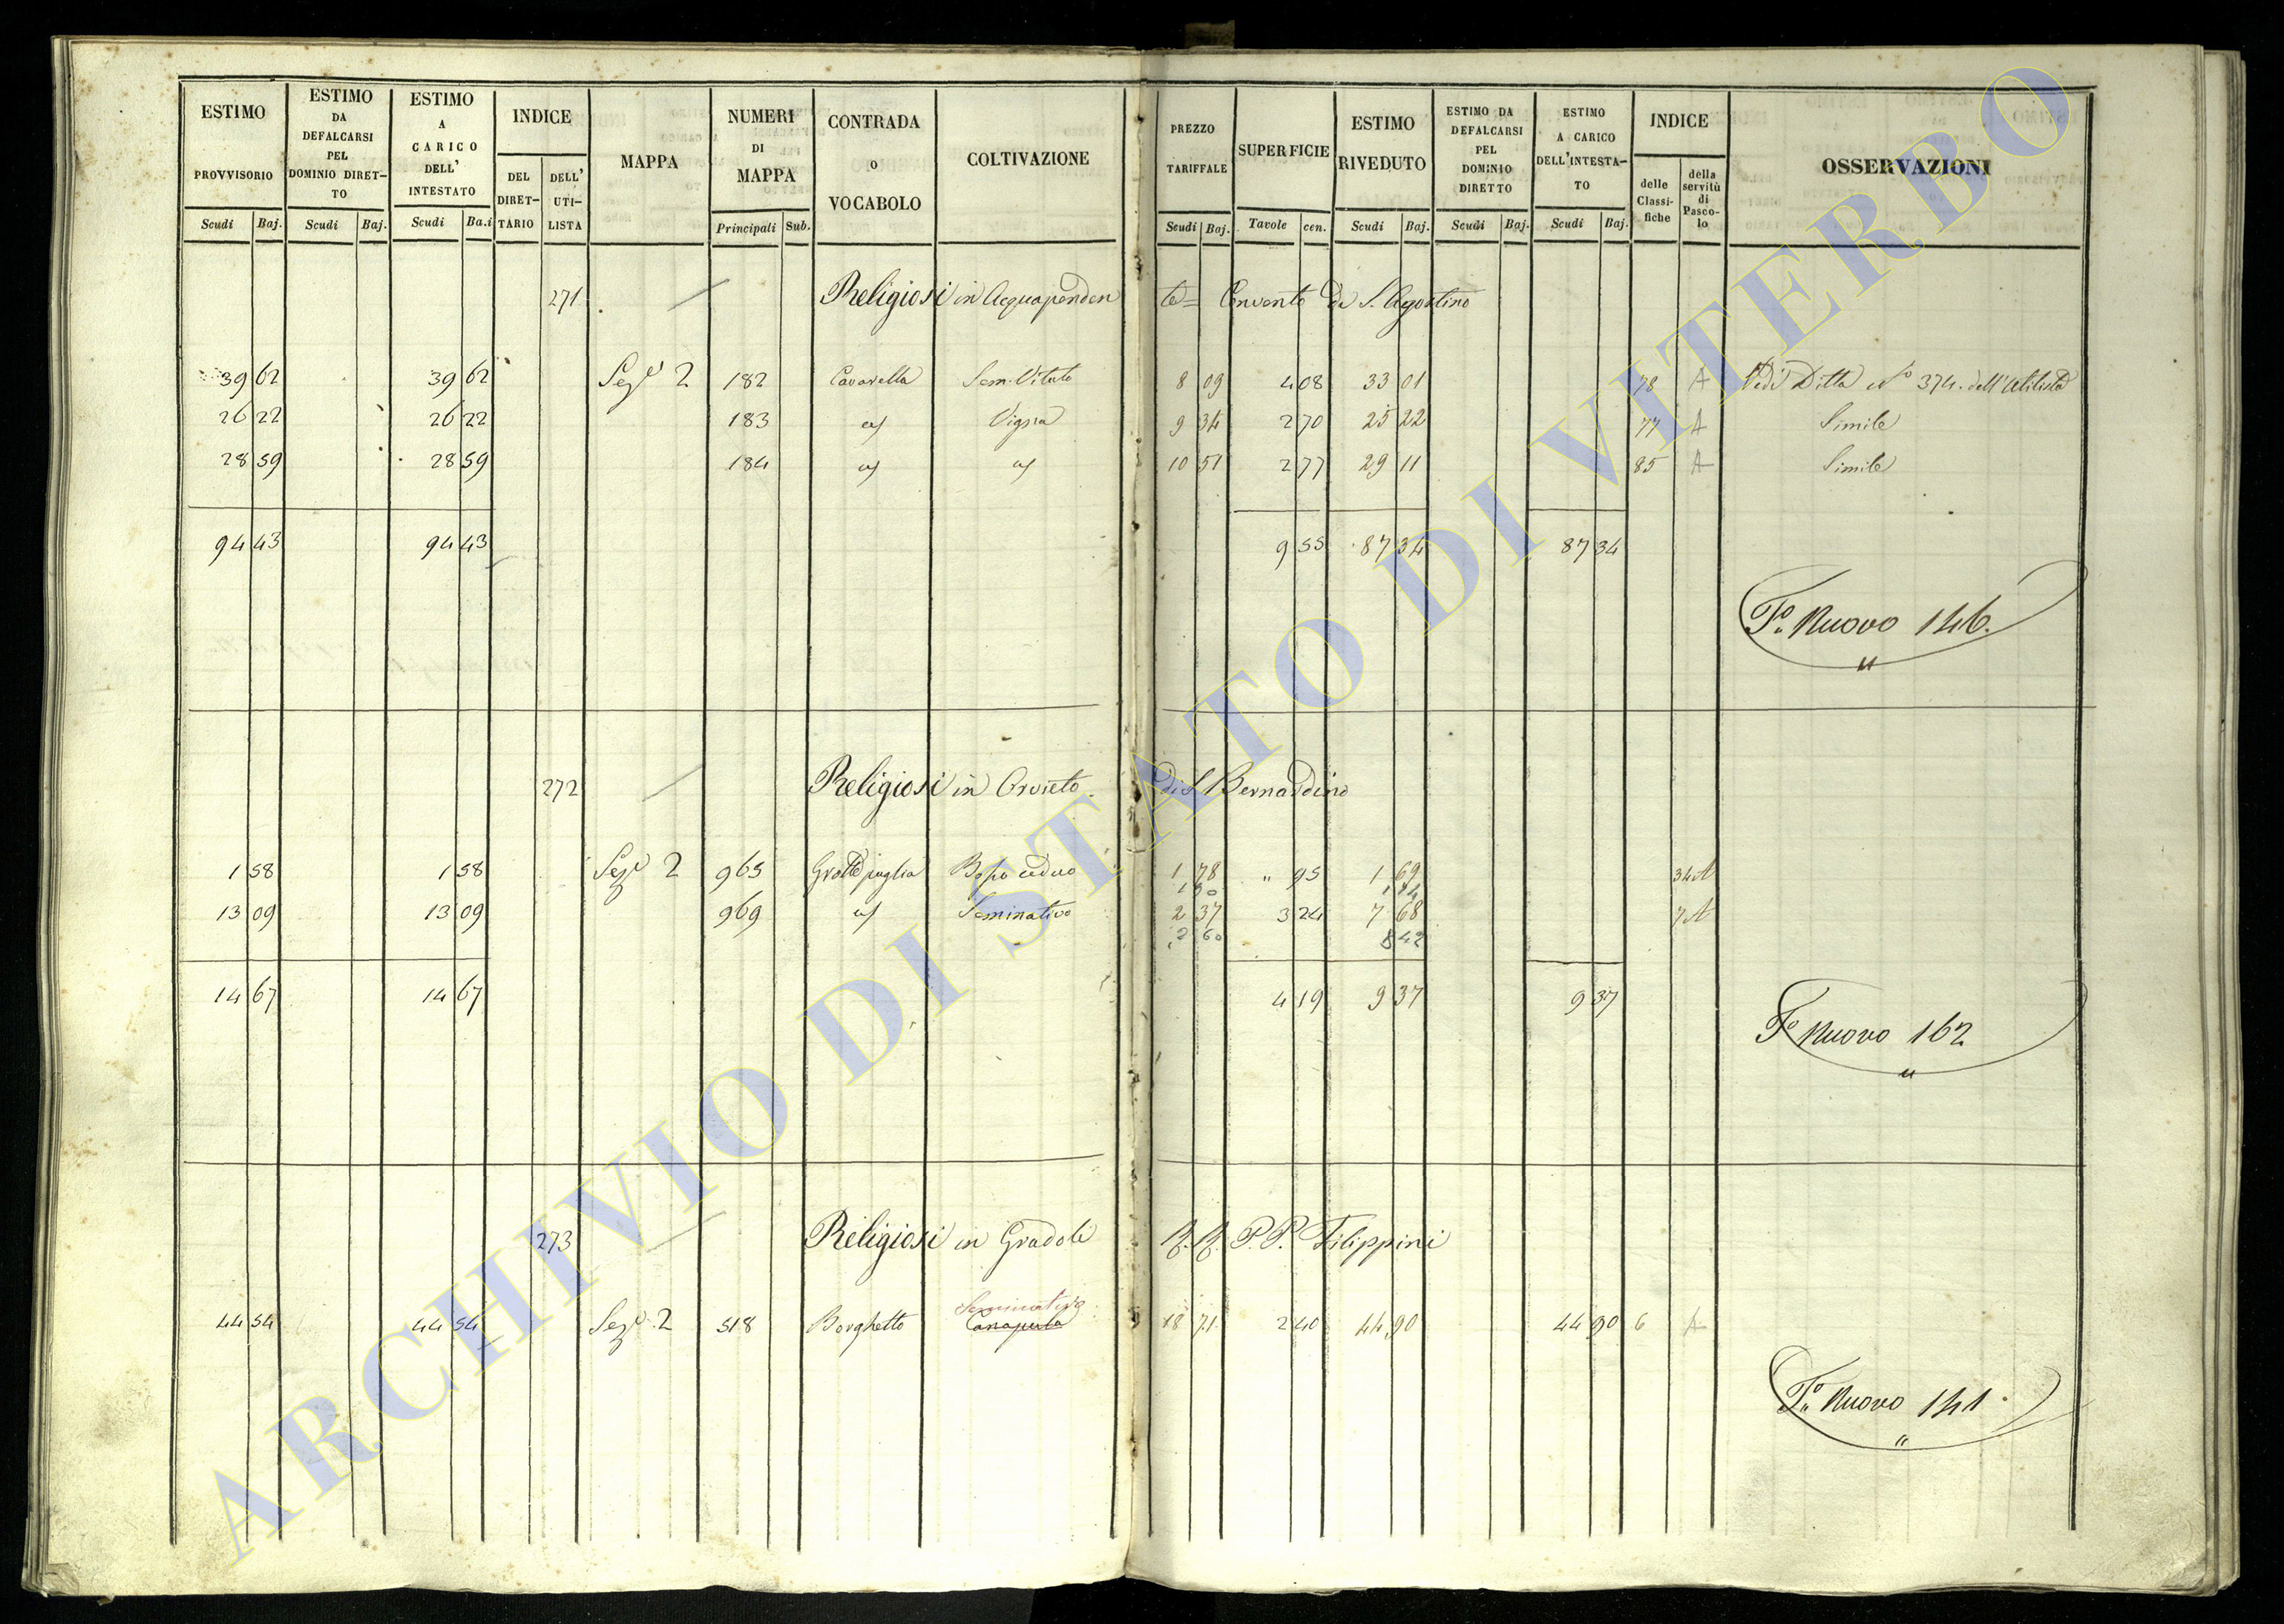 ESTIMO PROVVISORIO
ESTIMO DA DEFALCARSI PEL DOMINIO DIRET- TO
ESTIMO A CARICO DELL' INTESTATO
INDICE
DEL DIRET- TARIO
DELL' UTI- LISTA
MAPPA
NUMERI DI MAPPA
CONTRADA o VOCABOLO
COLTIVAZIONE
Scudi Baj. Scudi Baj. Scudi Ba.i Principali Sub.
PREZZO TARIFFALE
SUPERFICIE
ESTIMO RIVEDUTO
ESTIMO DA DEFALCARSI PEL DOMINIO DIRETTO
ESTIMO A CARICO DELL'INTESTA- TO
INDICE
delle Classi- fiche
della servitù di Pasco- lo
OSSERVAZIONI
Scudi Baj. Tavole cen. Scudi Baj. Scudi Baj. Scudi Baj.
271 Religiosi in Acquapenden te= Convento di S. Agostino
39 62 39 62 Sez.e 2 182 Cavarella Sem. Vitato 8 09 4 08 33 01 78 A Vedi Ditta N° 374. dell'Utilista
26 22 26 22 183 Vigna 9 34 2 70 25 22 77 A Simile
28 59 28 59 184 10 51 2 77 29 11 85 A Simile
94 43 94 43 9 55 87 34 87 34
F.o Nuovo 146.
272 Religiosi in Orvieto di S. Bernardino
1 58 1 58 Sez.e 2 965 1 78 " 95 1 69 34 A
13 09 13 09 969 Seminativo 2 37 3 24 7 68 7 A
2 60 8 42
14 67 14 67 4 19 9 37 9 37
F.o Nuovo 162
273 Religiosi in Gradoli R. R. P. P. Filippini
Seminativo
44 54 44 54 Sez.e 2 518 Borghetto Canapula 18 71 2 40 44 90 44 90 6 A
F.o Nuovo 141.
ARCHIVIO DI STATO DI VITERBO